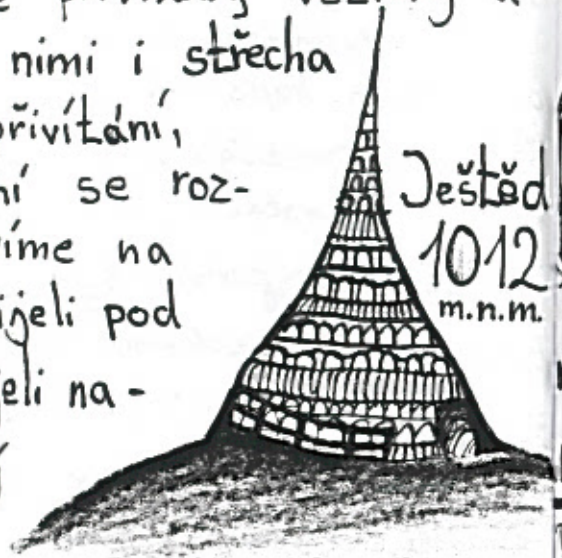 nimi i střecha
přivítání,
ní se roz-
víme na
jeli pod
jeli na-
í
Ještěd
1012
m.n.m.